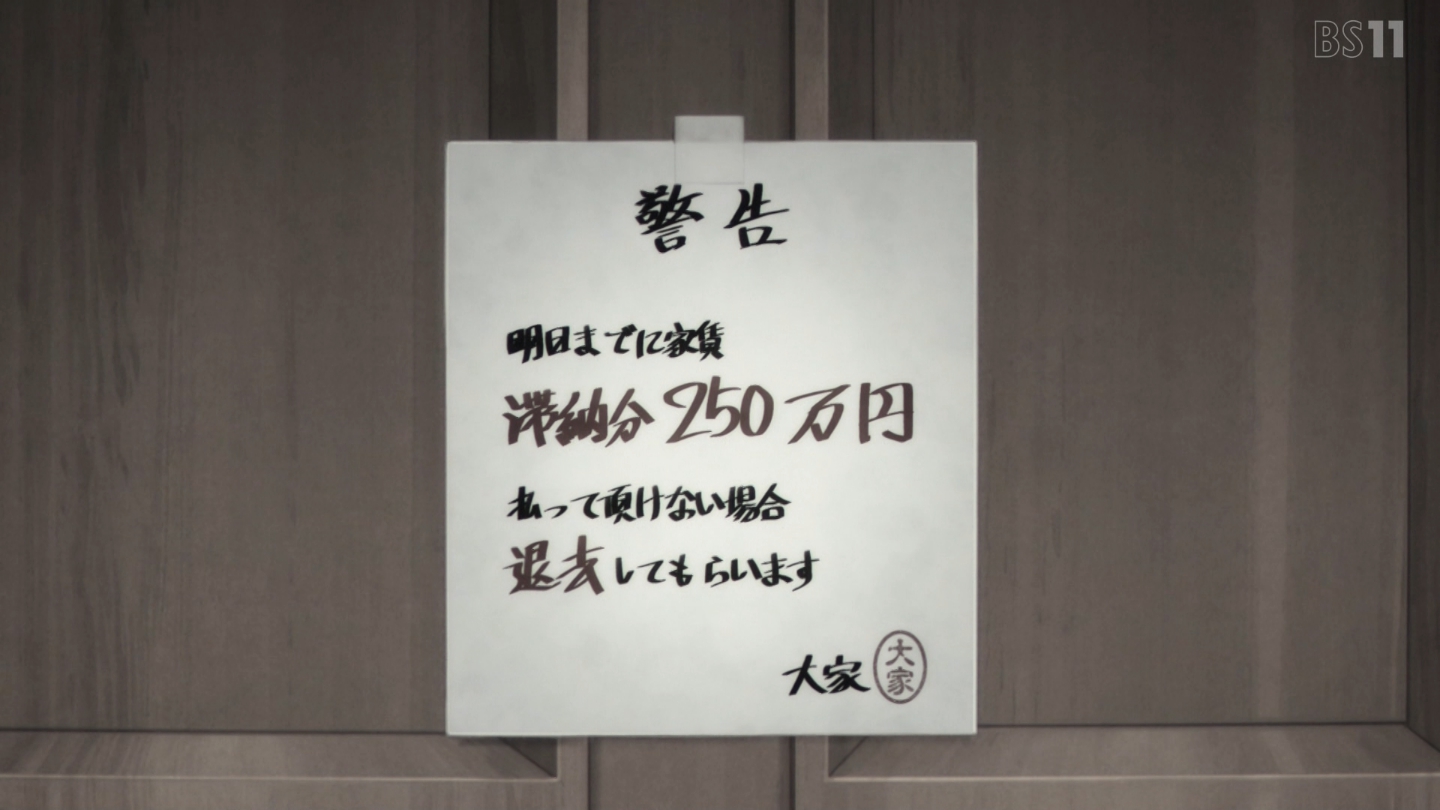 BS11
警告
明日までに家賃
滞納分250万円
払って頂けない場合
退去してもらいます
大家 大家